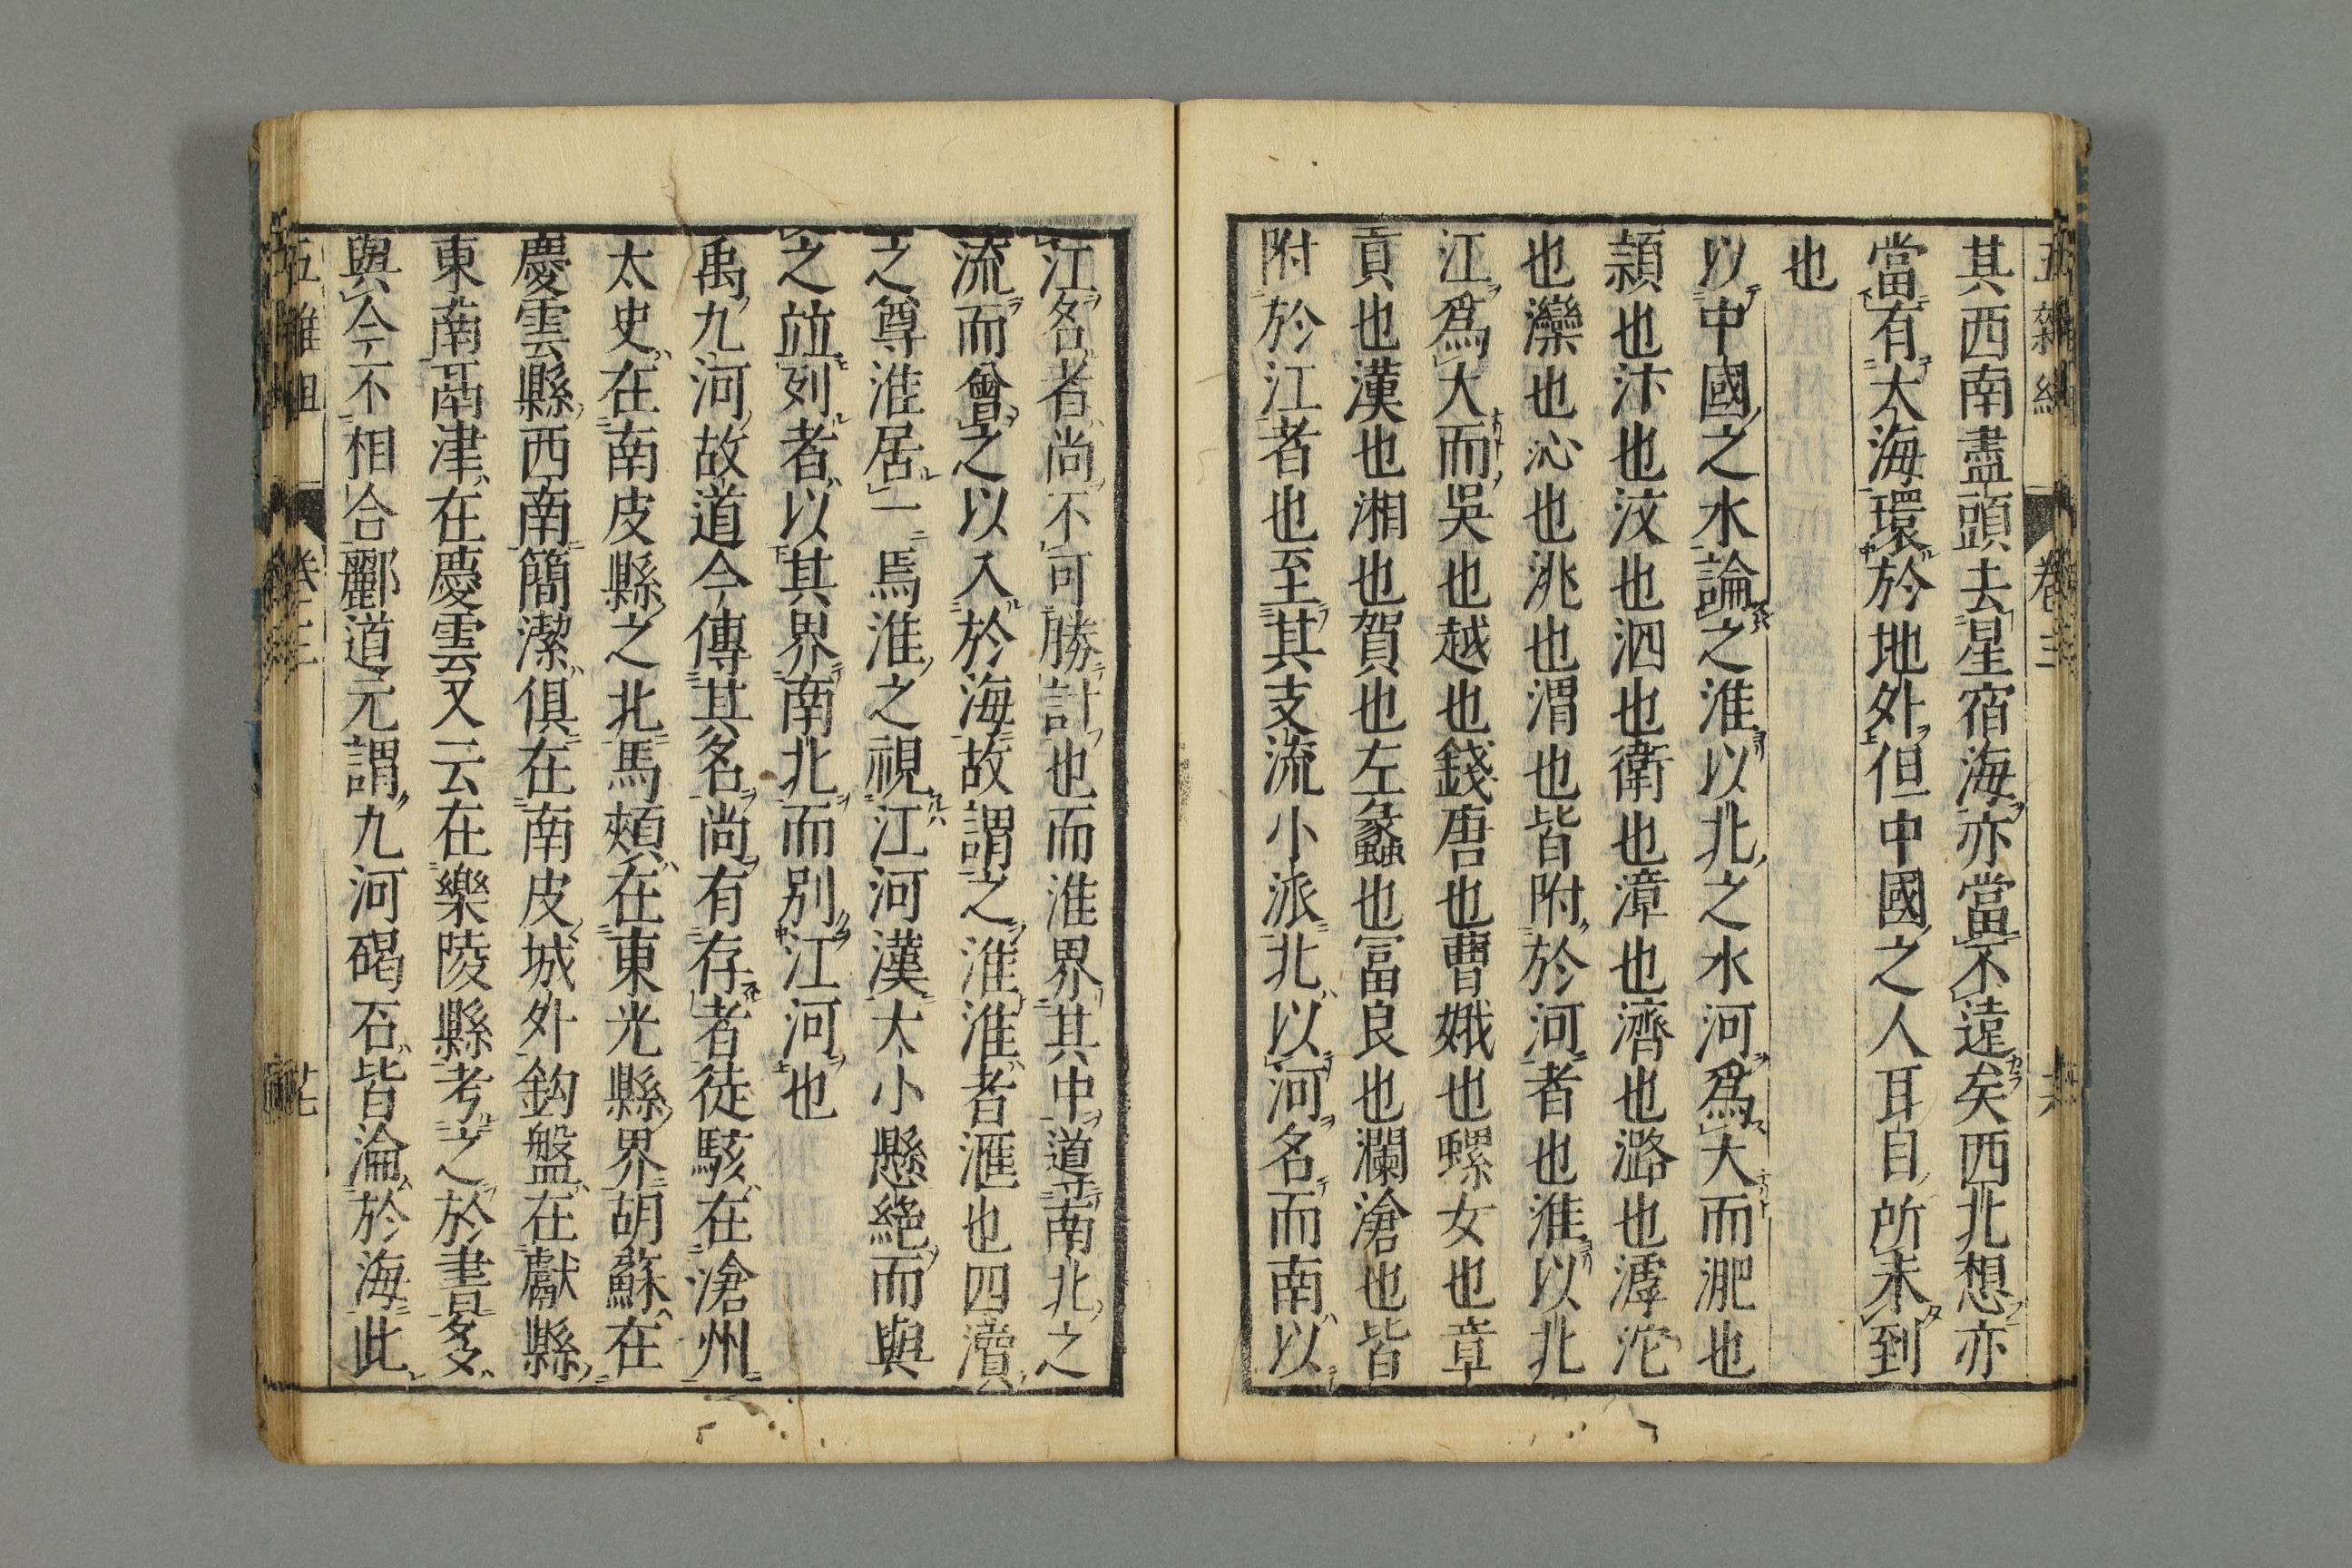 五雜組 卷三
其西南盡頭去星宿海亦當不遠矣西北想亦
當有大海環於地外但中國之人耳目所未到
也
以中國之水論之淮以北之水河爲大而淝也
潁也汴也汶也泗也衛也漳也濟也潞也滹沱
也灤也沁也洮也渭也皆附於河者也淮以北
江爲大而吳也越也錢唐也曹娥也螺女也章
貢也漢也湘也賀也左蠡也富良也瀾滄也皆
附於江者也至其支流小派北以河名而南以
江名者尚不可勝計也而淮界其中道南北之
流而會之以入於海故謂之淮淮者滙也四瀆
之尊淮居一焉淮之視江河漢大小懸絕而與
之竝列者以其界南北而別江河也
禹九河故道今傳其名尚有存者徒駭在滄州
太史在南皮縣之北馬頰在東光縣界胡蘇在
慶雲縣西南簡潔俱在南皮城外鈎盤在獻縣
東南鬲津在慶雲又云在樂陵縣考之於書多
與今不相合酈道元謂九河碣石皆淪於海此
五雜組 卷三